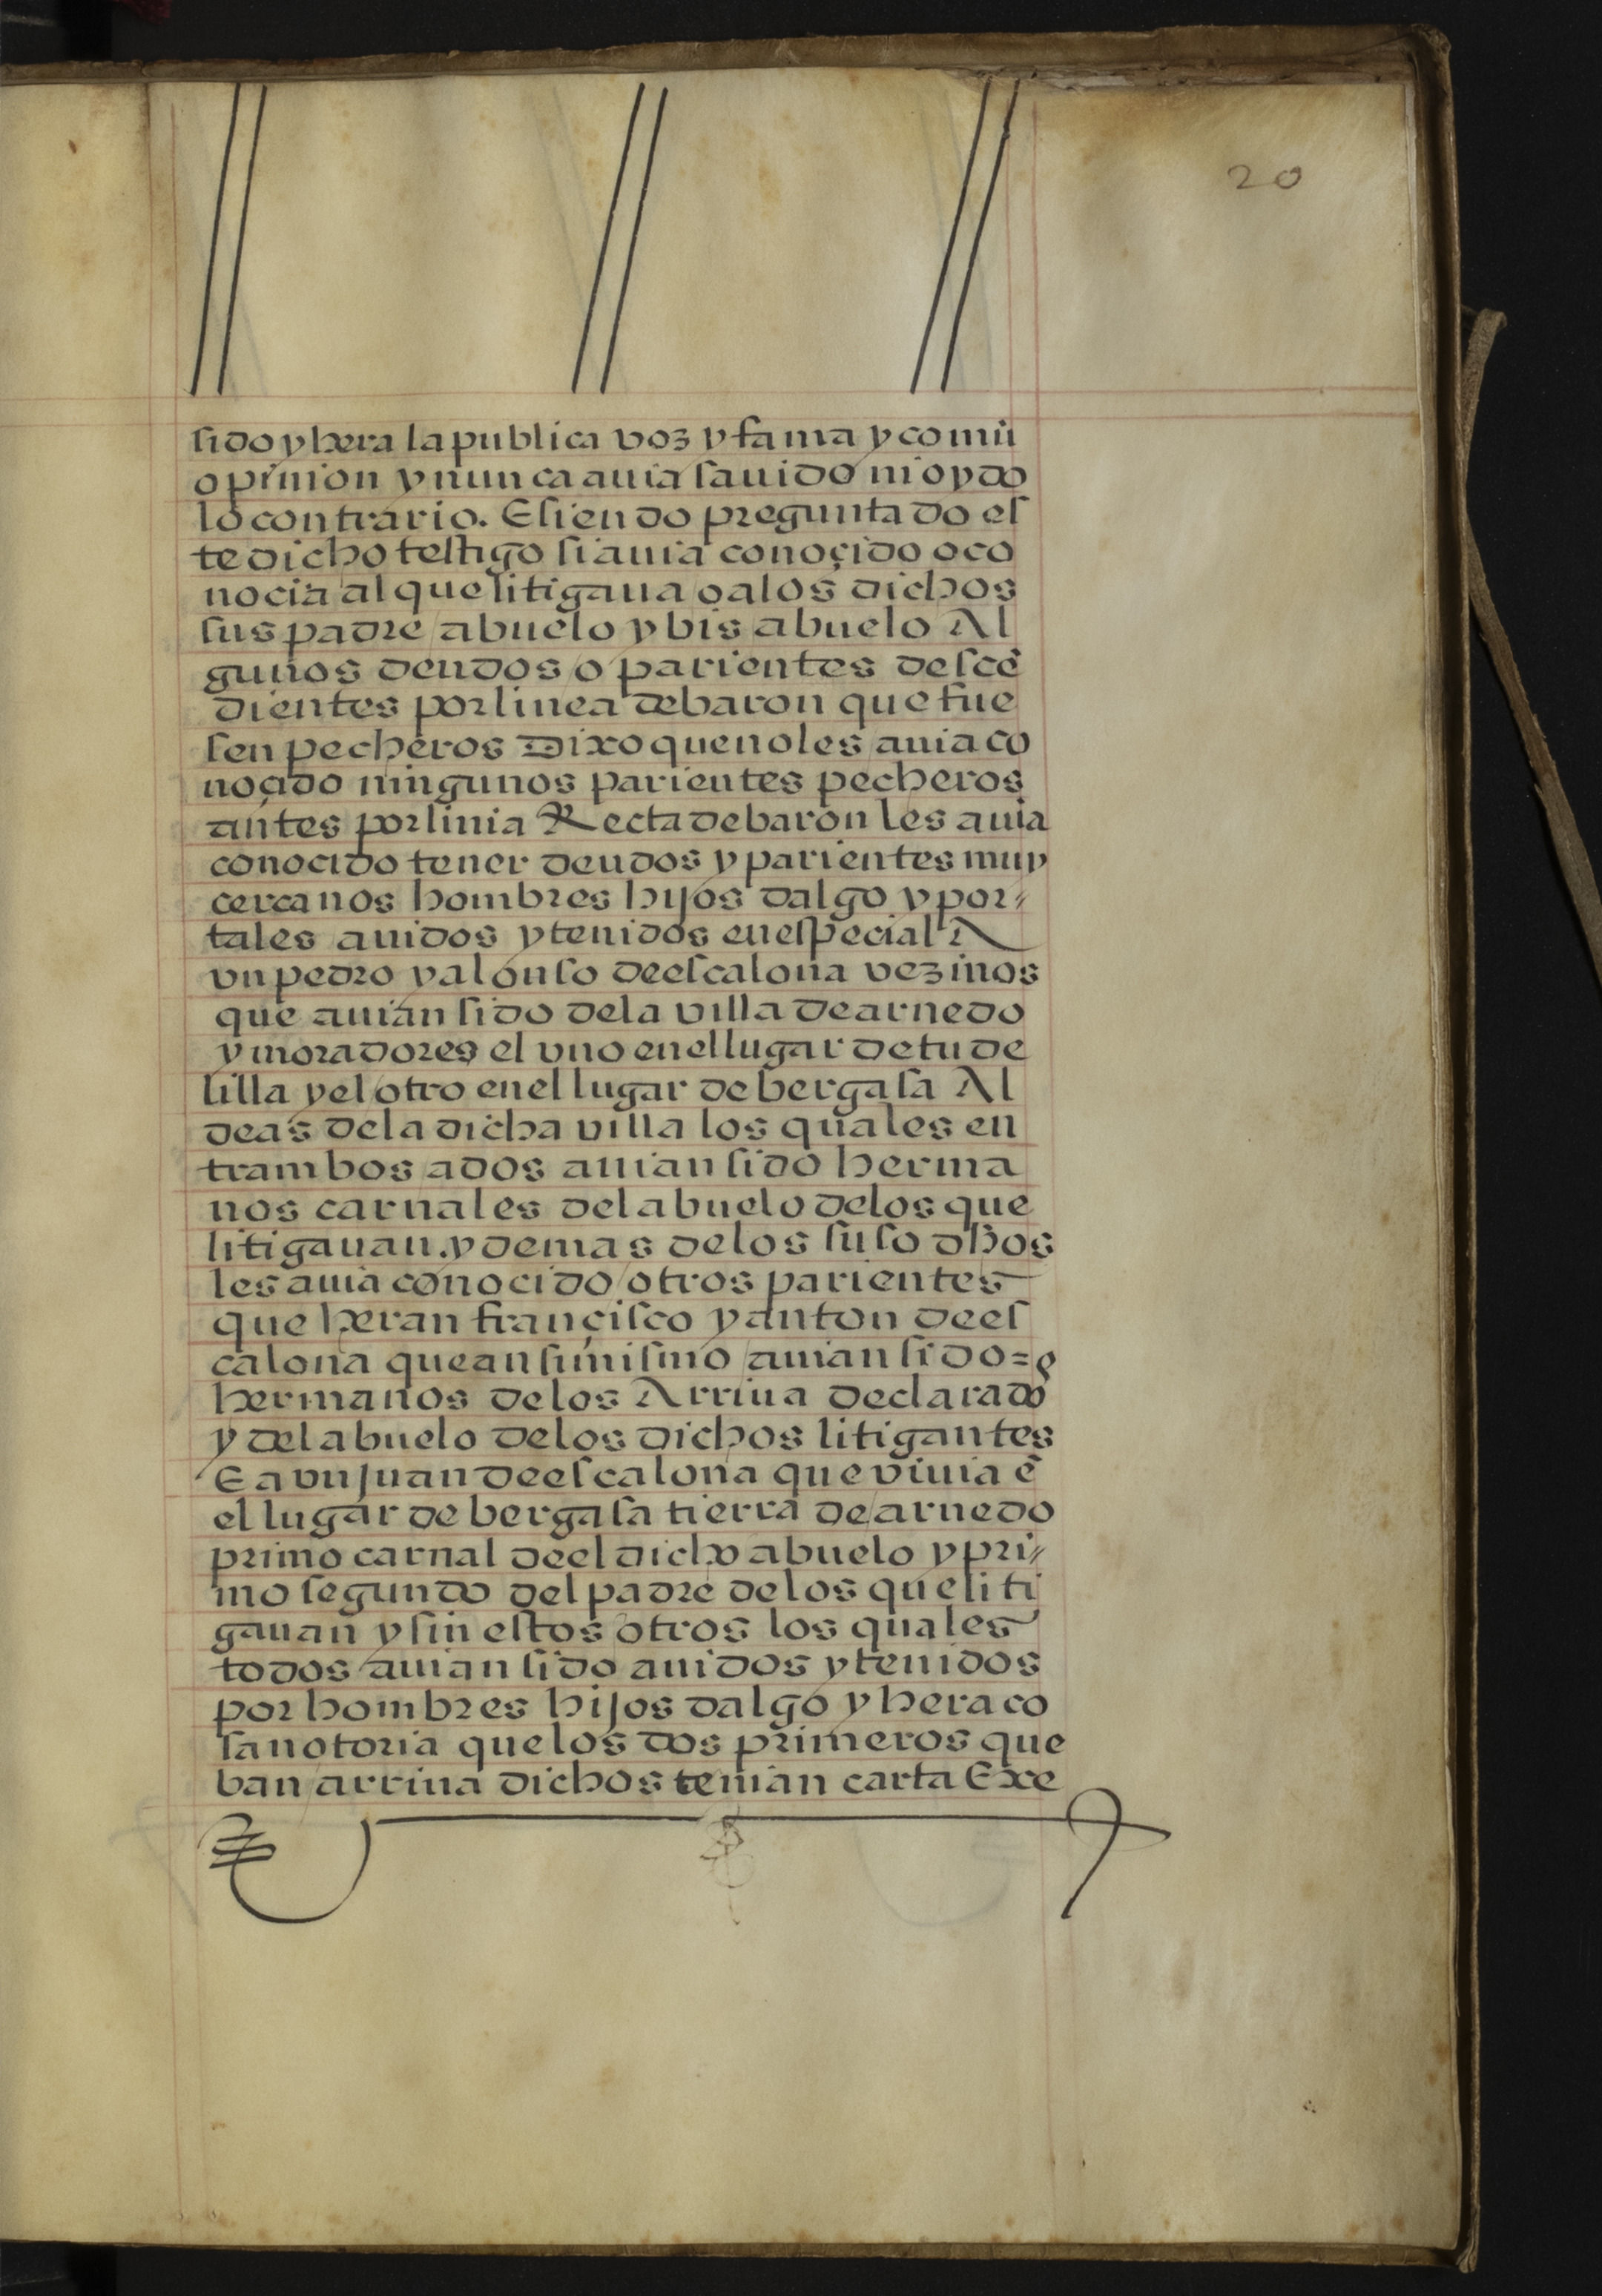 20
sido y hera la publica voz y fama y comũ
opinion y nunca auia sauido ni oydo
lo contrario. E siendo preguntado es
te dicho testigo si auia conoçido o co
nocia al que litigaua o a los dichos
sus padre abuelo y bisabuelo Al
gunos deudos o parientes descẽ
dientes por linea de baron que fue
sen pecheros Dixo que no les auia co
noçido ningunos parientes pecheros
antes por linia Recta de baron les auia
conocido tener deudos y parientes muy
cercanos hombres hijos dalgo y por
tales auidos y tenidos en especial A
vn pedro y alonso de escalona vezinos
que auian sido de la villa de arnedo
y moradores el vno en el lugar de tude
lilla y el otro en el lugar de bergasa Al
deas de la dicha villa los quales en
trambos ados auian sido herma
nos carnales del abuelo de los que
litigauan. y demas de los suso dhos
les auia conocido otros parientes
que heran françisco y anton de es
calona que ansimismo auian sido=
hermanos de los Arriua declarados
y del abuelo de los dichos litigantes
E a vn juan de escalona que viuia ẽ
el lugar de bergasa tierra de arnedo
primo carnal de el dicho abuelo y pri
mo segundo del padre de los que liti
gauan y sin estos otros los quales
todos auian sido auidos y tenidos
por hombres hijos dalgo y hera co
sa notoria que los dos primeros que
ban arriua dichos tenian carta Exe